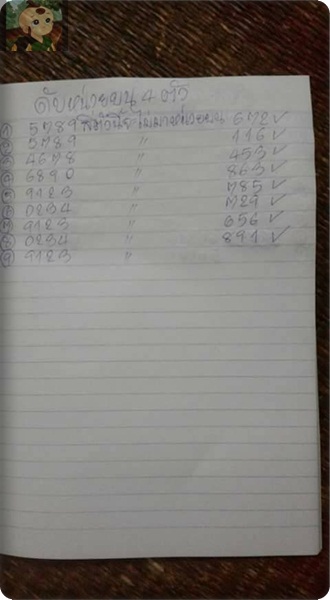 ดับหน่วยบน 4 ตัว
① 5789 4ตัวนี้จะไม่มาหน่วยบน 672 ✓
② 5789 " 446 ✓
③ 4678 " 453 ✓
④ 6890 " 863 ✓
⑤ 9123 " 785 ✓
⑥ 0234 " 729 ✓
⑦ 9123 " 656 ✓
⑧ 0234 " 891 ✓
⑨ 9123 "